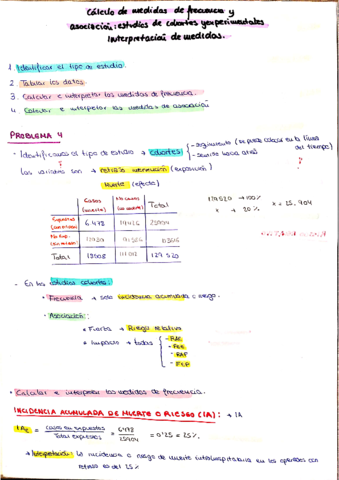 Cálculo de medidas de frecuencia y
asociación: estudios de cohortes y experimentales
Interpretación de medidas.
1. Identificar el tipo de estudio
2. Tabular los datos
3. Calcular e interpretar las medidas de frecuencia
4. Calcular e interpretar las medidas de asociación
PROBLEMA 4
- Identificamos el tipo de estudio → cohortes
- seguimiento (se puede colocar en la línea del tiempo)
Las variables son → retraso intervención (exposición)
Muerte (efecto)
Casos (muerte) No casos Total
Expuestos 6.478 19426 25904
Total 129 520
129520 → 100%
x → 20%
x = 25,904
- En los estudios cohortes:
• Frecuencia → solo incidencia acumulada o riesgo.
• Asociación:
• Fuerza → Riesgo relativo
• Impacto → todas
- RAE
- FEE
- RAP
- FEP
• Calcular e interpretar las medidas de frecuencia.
INCIDENCIA ACUMULADA DE MUERTE O RIESGO (IA): → IA
IAE = casos en expuestos / Total expuestos = 6478 / 25904 = 0'25 = 25%.
→ Interpretación: la incidencia o riesgo de muerte intrahospitalaria en los operados con
retraso es del 25%